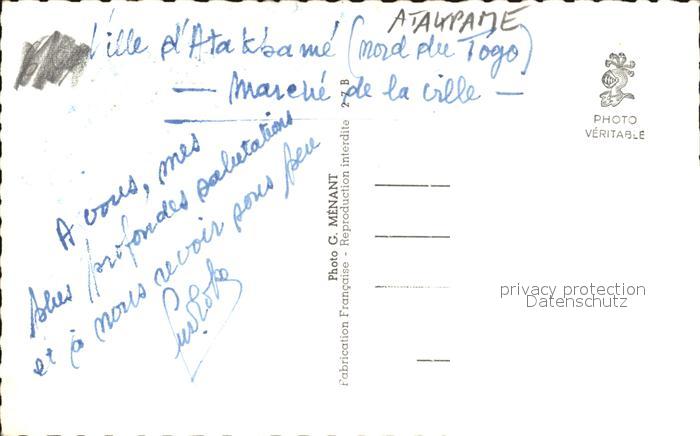 ATAKPAME
Ville d'Atakbamé (nord du Togo)
— Marché de la ville —
A vous, mes
plus profondes salutations
et à nous revoir sous peu
Photo G. MÉNANT
Fabrication Française - Reproduction interdite 2 7 B
PHOTO
VÉRITABLE
privacy protection
Datenschutz